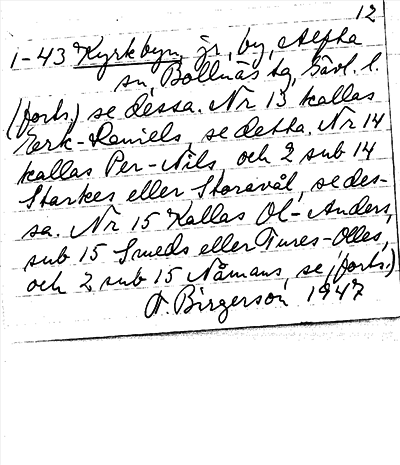 12
1-43 Kyrkbyn, jr, by, Alfta
sn, Bollnäs tg, Gävl. l.
(forts.) se dessa. Nr 13 kallas
Erk-Daniels, se detta. Nr 14
kallas Per-Nils, och 2 sub 14
Starkes eller Storavål, se des-
sa. Nr 15 kallas Ol-Anders,
sub 15 Smeds eller Tures-Olles,
och 2 sub 15 Nåmans, se (forts.)
F. Birgerson 1947